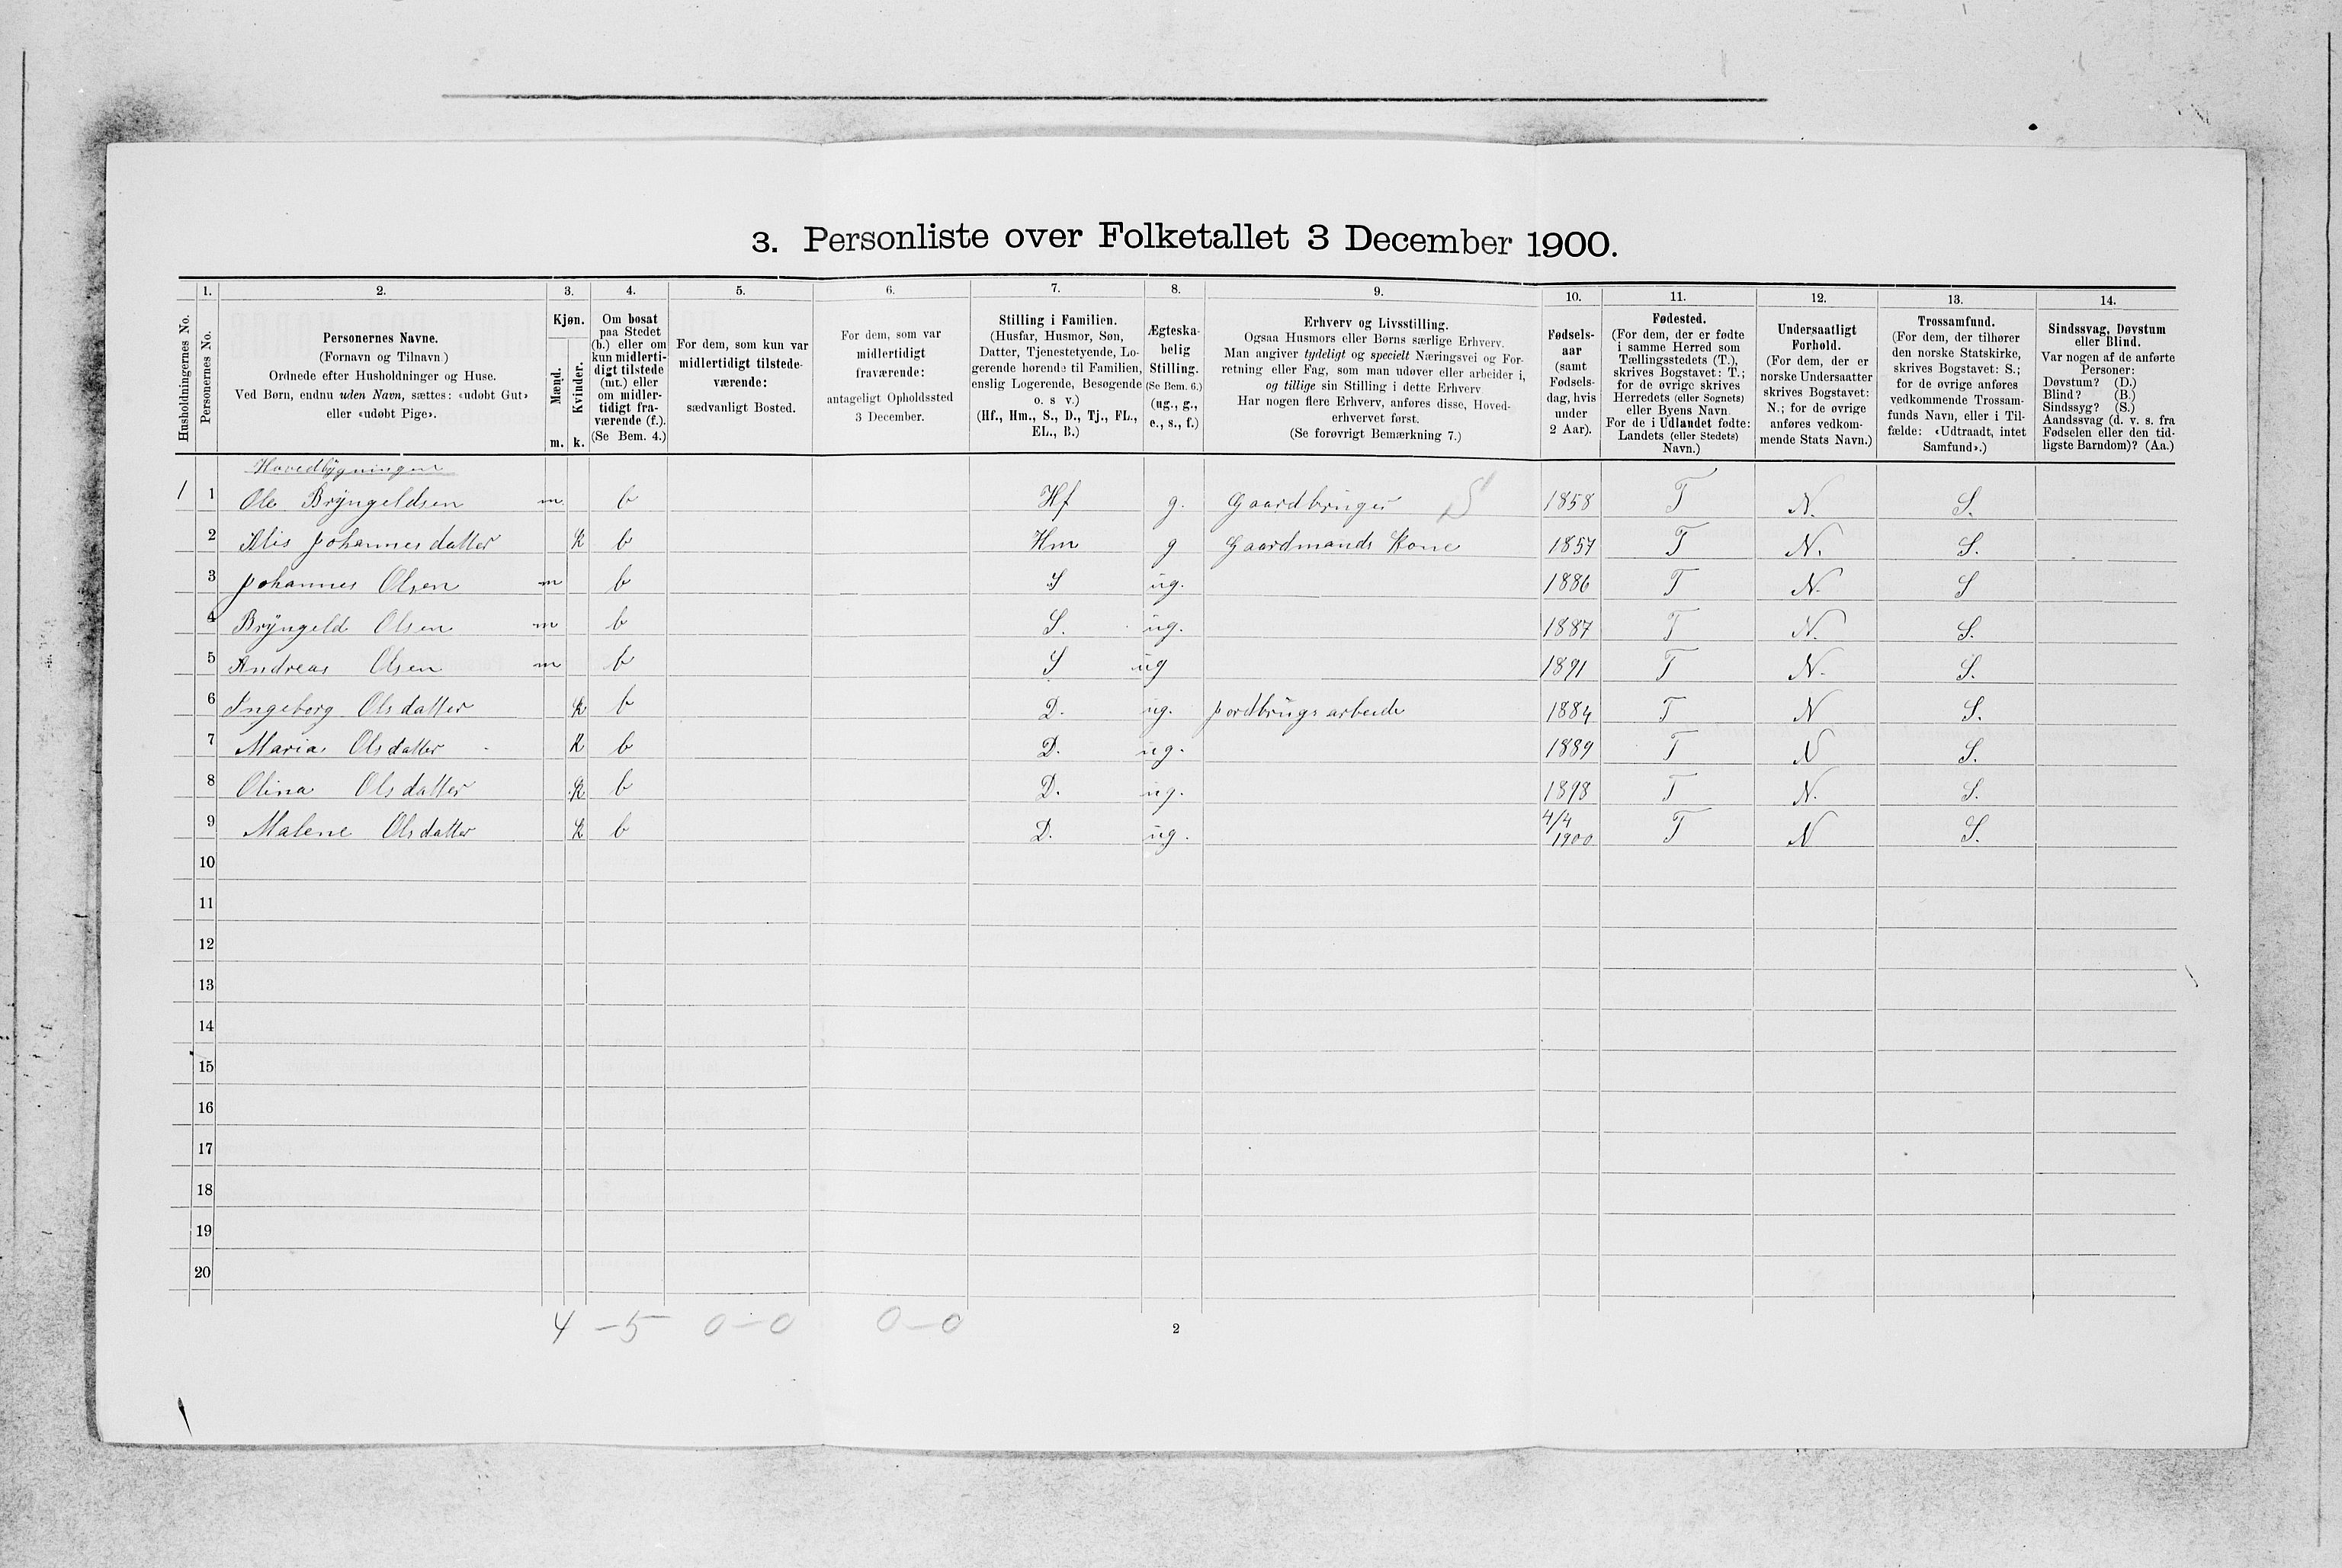 3. Personliste over Folketallet 3 December 1900.
Husholdningernes No.
1.
Personernes No.
2.
Personernes Navne.
(Fornavn og Tilnavn)
Ordnede efter Husholdninger og Huse.
Ved Børn, endnu uden Navn, sættes: «udøbt Gut»
eller «udøbt Pige».
3.
Kjøn.
Mænd.
Kvinder.
m. k.
4.
Om bosat
paa Stedet
(b.) eller om
kun midlerti-
digt tilstede
(mt.) eller
om midler-
tidigt fra-
værende (f.).
(Se Bem. 4.)
5.
For dem, som kun var
midlertidigt tilstede-
værende:
sædvanligt Bosted.
6.
For dem, som var
midlertidigt
fraværende:
antageligt Opholdssted
3 December.
7.
Stilling i Familien.
(Husfar, Husmor, Søn,
Datter, Tjenestetyende, Lo-
gerende hørende til Familien,
enslig Logerende, Besøgende
o. s v.)
(Hf., Hm., S., D., Tj., FL.,
EL., B.)
8.
Ægteska-
belig
Stilling.
(Se Bem. 6.)
(ug., g.,
e., s., f.)
9.
Erhverv og Livsstilling.
Ogsaa Husmors eller Børns særlige Erhverv.
Man angiver tydeligt og specielt Næringsvei og For-
retning eller Fag, som man udøver eller arbeider i,
og tillige sin Stilling i dette Erhverv
Har nogen flere Erhverv, anføres disse, Hoved-
erhvervet først.
(Se forøvrigt Bemærkning 7.)
10.
Fødsels-
aar
(samt
Fødsels-
dag, hvis
under
2 Aar).
11.
Fødested.
(For dem, der er fødte
i samme Herred som
Tællingsstedets (T.),
skrives Bogstavet: T.;
for de øvrige skrives
Herredets (eller Sognets)
eller Byens Navn.
For de i Udlandet fødte:
Landets (eller Stedets)
Navn.)
12.
Undersaatligt
Forhold.
(For dem, der er
norske Undersaatter
skrives Bogstavet:
N.; for de øvrige
anføres vedkom-
mende Stats Navn.)
13.
Trossamfund.
(For dem, der tilhører
den norske Statskirke,
skrives Bogstavet: S.;
for de øvrige anføres
vedkommende Trossam-
funds Navn, eller i Til-
fælde: «Udtraadt, intet
Samfund».)
14.
Sindssvag, Døvstum
eller Blind.
Var nogen af de anførte
Personer:
Døvstum? (D.)
Blind? (B.)
Sindssyg? (S.)
Aandssvag (d. v. s. fra
Fødselen eller den tid-
ligste Barndom)? (Aa.)
Hovedbygningen
1 1 Ole Bryngeldsen m. b Hf g. Gaardbruger S 1858 T N. S.
2 Alis Johannesdatter k b Hm g Gaardmands Kone 1857 T N. S.
3 Johannes Olsen m b S ug. 1886 T N. S
4 Bryngeld Olsen m b S. ug. 1887 T N. S.
5 Andreas Olsen m b S ug 1891 T N. S.
6 Ingeborg Olsdatter k b D. ug. Jordbrugsarbeide 1884 T N S.
7 Maria Olsdatter k b D. ug. 1889 T N S.
8 Olina Olsdatter k b D. ug. 1898 T N. S.
9 Malene Olsdatter k b D. ug. 4/4 1900 T N S.
10
11
12
13
14
15
16
17
18
19
20
4 - 5 0 - 0 0 - 0
2